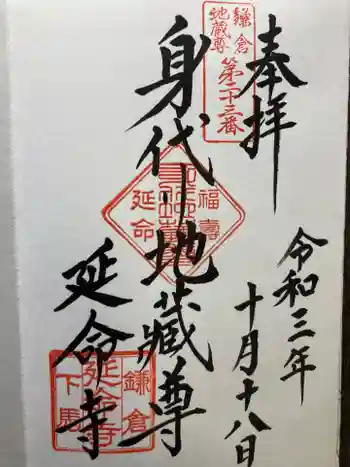 奉拝
鎌倉
地蔵尊
第二十三番
令和三年
十月十八日
身代り地蔵尊
福寿
延命
延命寺
鎌倉
延命寺
下馬